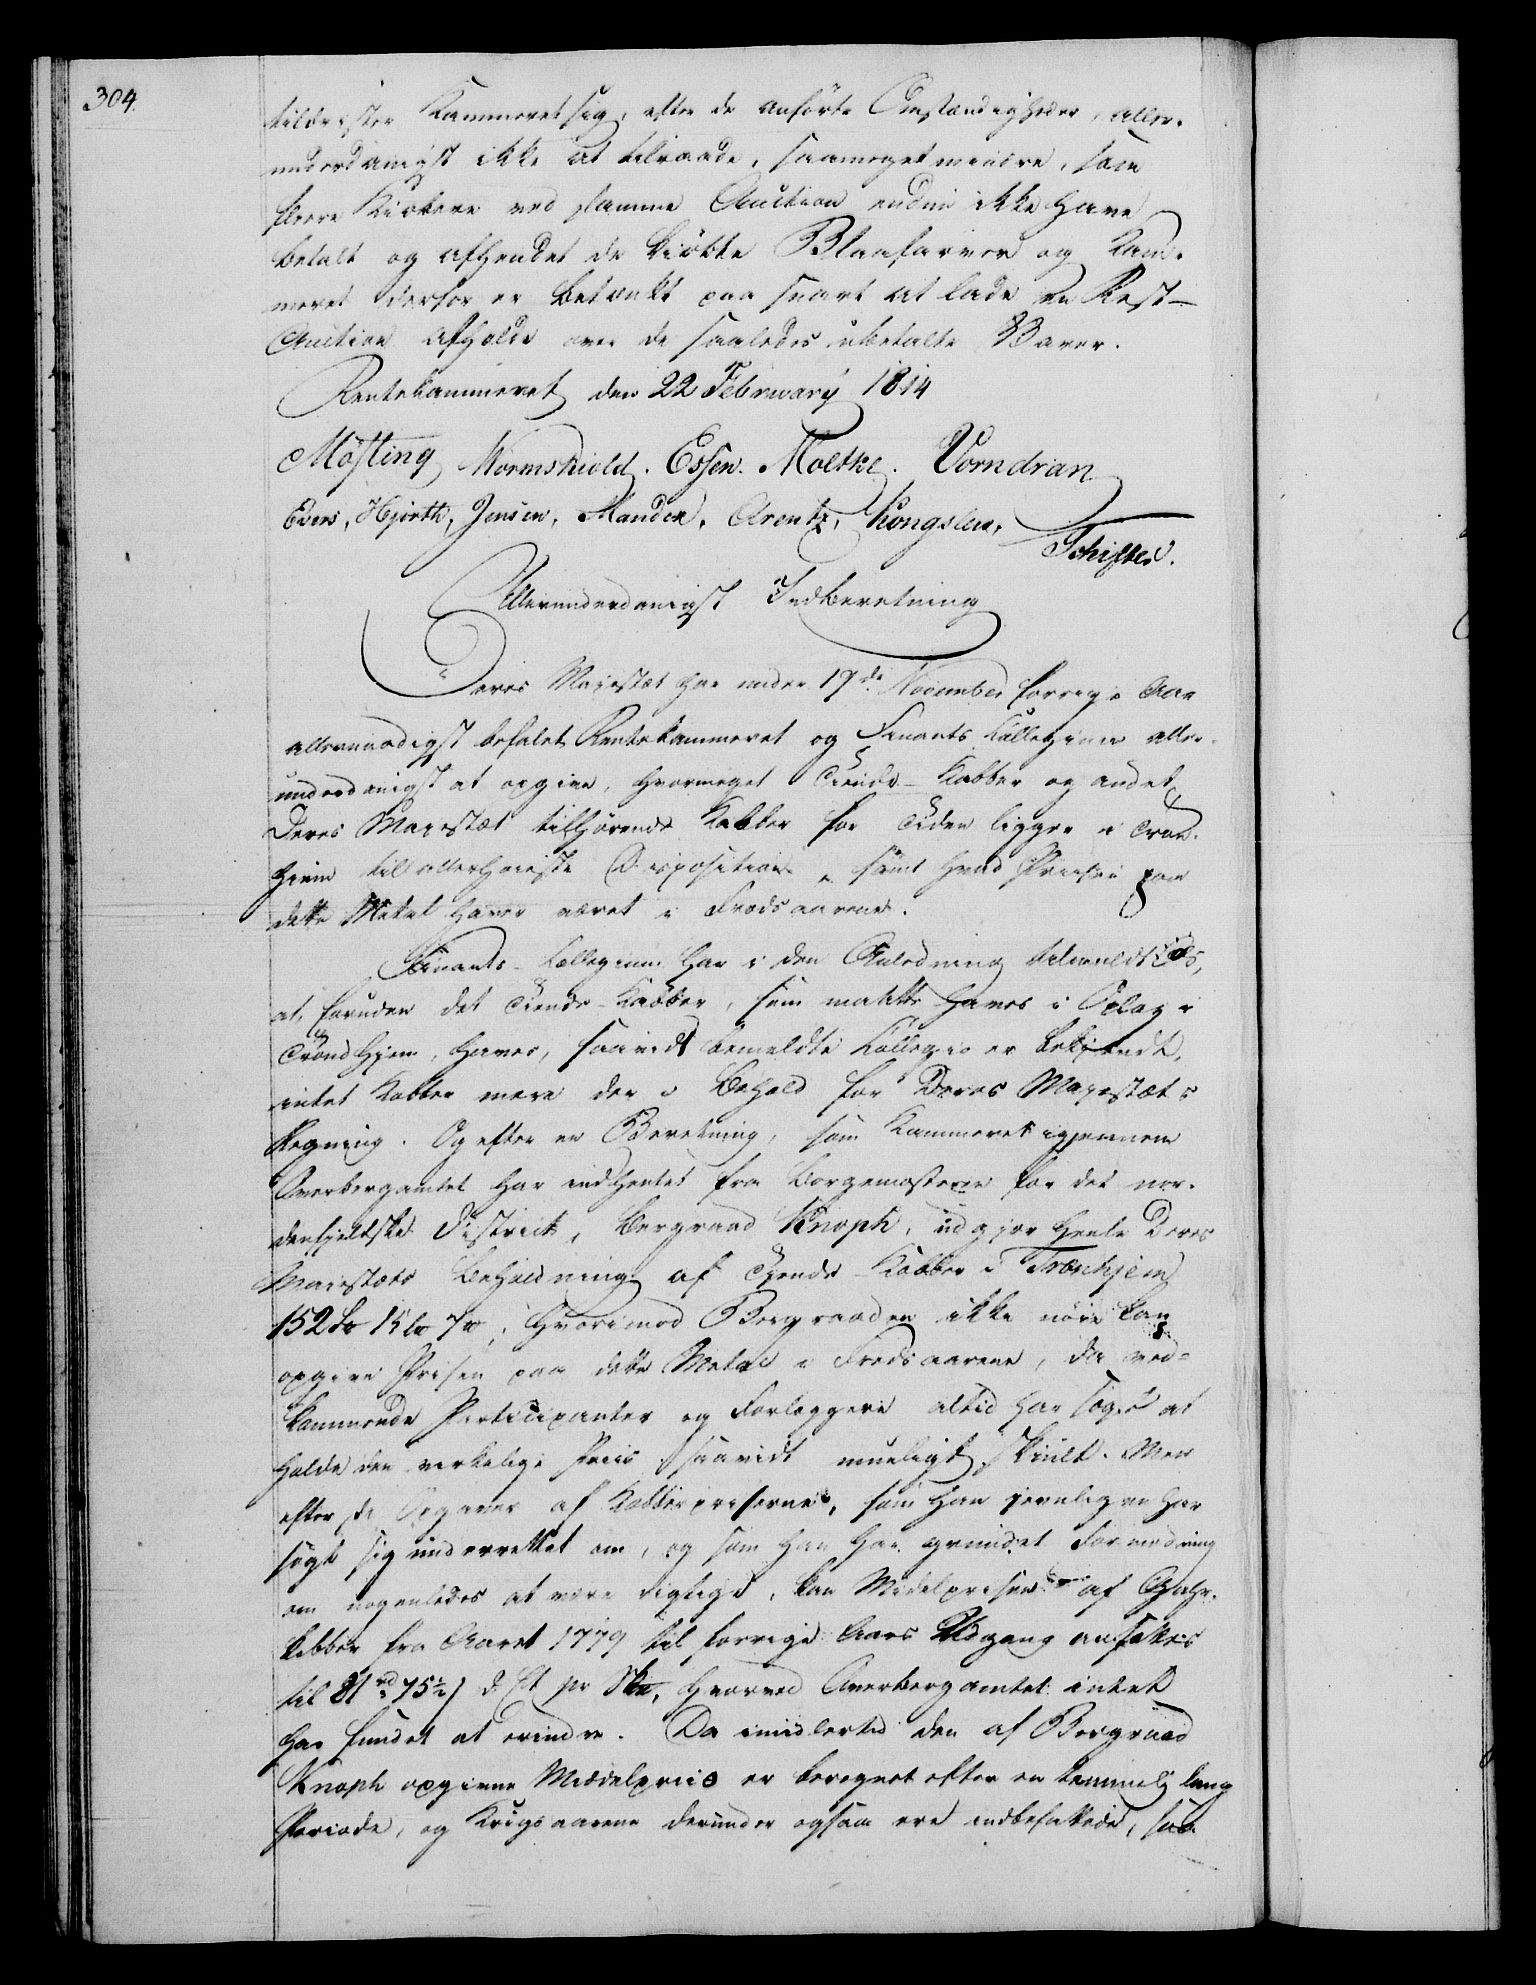 304.
tilkaster Kammeret sig, efter de anførte Omstændigheder, aller-
underdanigst ikke at tilraade, saameget mindre, som
fleere Kiøbere ved samme Auction endnu ikke have
betalt og afhendet de kiøbte Blaafarver og Kam-
meret derfor er betænkt paa snart at lade en Rest-
Auction afholde over de saaledes ubetalte Varer.
Rentekammeret den 22 Februarÿ 1814
Møsting Wormskiold. Essen. Moltke. Vorndran
Evers, Hjorth, Jensen, Mandix, Arentz, Kongslew,
Schiftes.
Allerunderdanigst Indberetning
Deres Majestæt har under 17de November forrige Aar
allernaadigst befalet Rentekammeret og Finants Collegium aller-
underdanigst at opgive, hvormeget Tiende-Kobber og andet
Deres Majestæt tilhørende Kobber for Tiden ligger i Tron-
hiem til allerhøieste Disposition, samt hvad Prisen paa
dette Metal haver været i Fredsaarene.
Finants-Collegium har i den Anledning tilmeldt os,
at, foruden det Tiende-Kobber, som maatte haves i Oplag i
Trondhjem, haves, saavidt bemeldte Collegio er bekjendt,
intet Kobber mere der i Behold for Deres Majestæts
Regning. Og efter en Beretning, som Kammeret igjennem
Overbergamtet har indhentet fra Bergemesteren for det nor-
denfjeldske District, Bergraad Knoph, udgjør heele Deres
Majestæts Beholdning af Tiende-Kobber i Tronhjem
152 Sk 15 lb 7 ; hvorimod Bergraaden ikke nøie kan
opgive Prisen paa dette Metal i Fredsaarene, da ved-
kommende Participanter og Forlæggere altid har søgt at
holde den virkelige Priis saavidt mueligt skiult. Men
efter de Opgaver af Kobberpriserne, som han jevnligen har
søgt sig underrettet om, og som han har grundet Formodning
om nogenledes at være rigtige, kan Middelprisen af Gahr-
kobber fra Aaret 1779 til forrige Aars Udgang ansættes
til 81 rd 75½ s d. Ct pr Sk, hvorved Overbergamtet intet
har fundet at erindre. Da imidlertid den af Bergraad
Knoph opgivne Middelpriis er beregnet efter en temmelig lang
Periode, og Krigsaarene derunder ogsaa ere indbefattede, saa